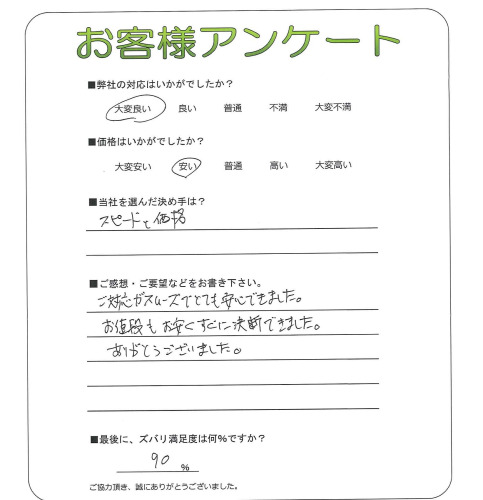 お客様アンケート
■弊社の対応はいかがでしたか？
大変良い 良い 普通 不満 大変不満
■価格はいかがでしたか？
大変安い 安い 普通 高い 大変高い
■当社を選んだ決め手は？
スピードと価格
■ご感想・ご要望などをお書き下さい。
ご対応がスムーズでとても安心できました。
お値段もお安くすぐに決断できました。
ありがとうございました。
■最後に、ズバリ満足度は何%ですか？
90 %
ご協力頂き、誠にありがとうございました。